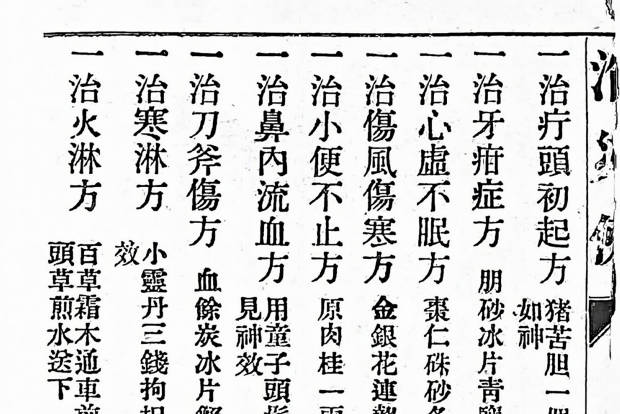 一治疔頭初起方
猪苦胆一
如神
一治牙疳症方
朋砂冰片青
一治心虛不眠方
棗仁硃砂各
一治傷風傷寒方
金銀花連
一治小便不止方
原肉桂一
一治鼻內流血方
用童子頭
見神效
一治刀斧傷方
血餘炭冰片
一治寒淋方
小靈丹三錢拘
效
一治火淋方
百草霜木通車前
頭草煎水送下